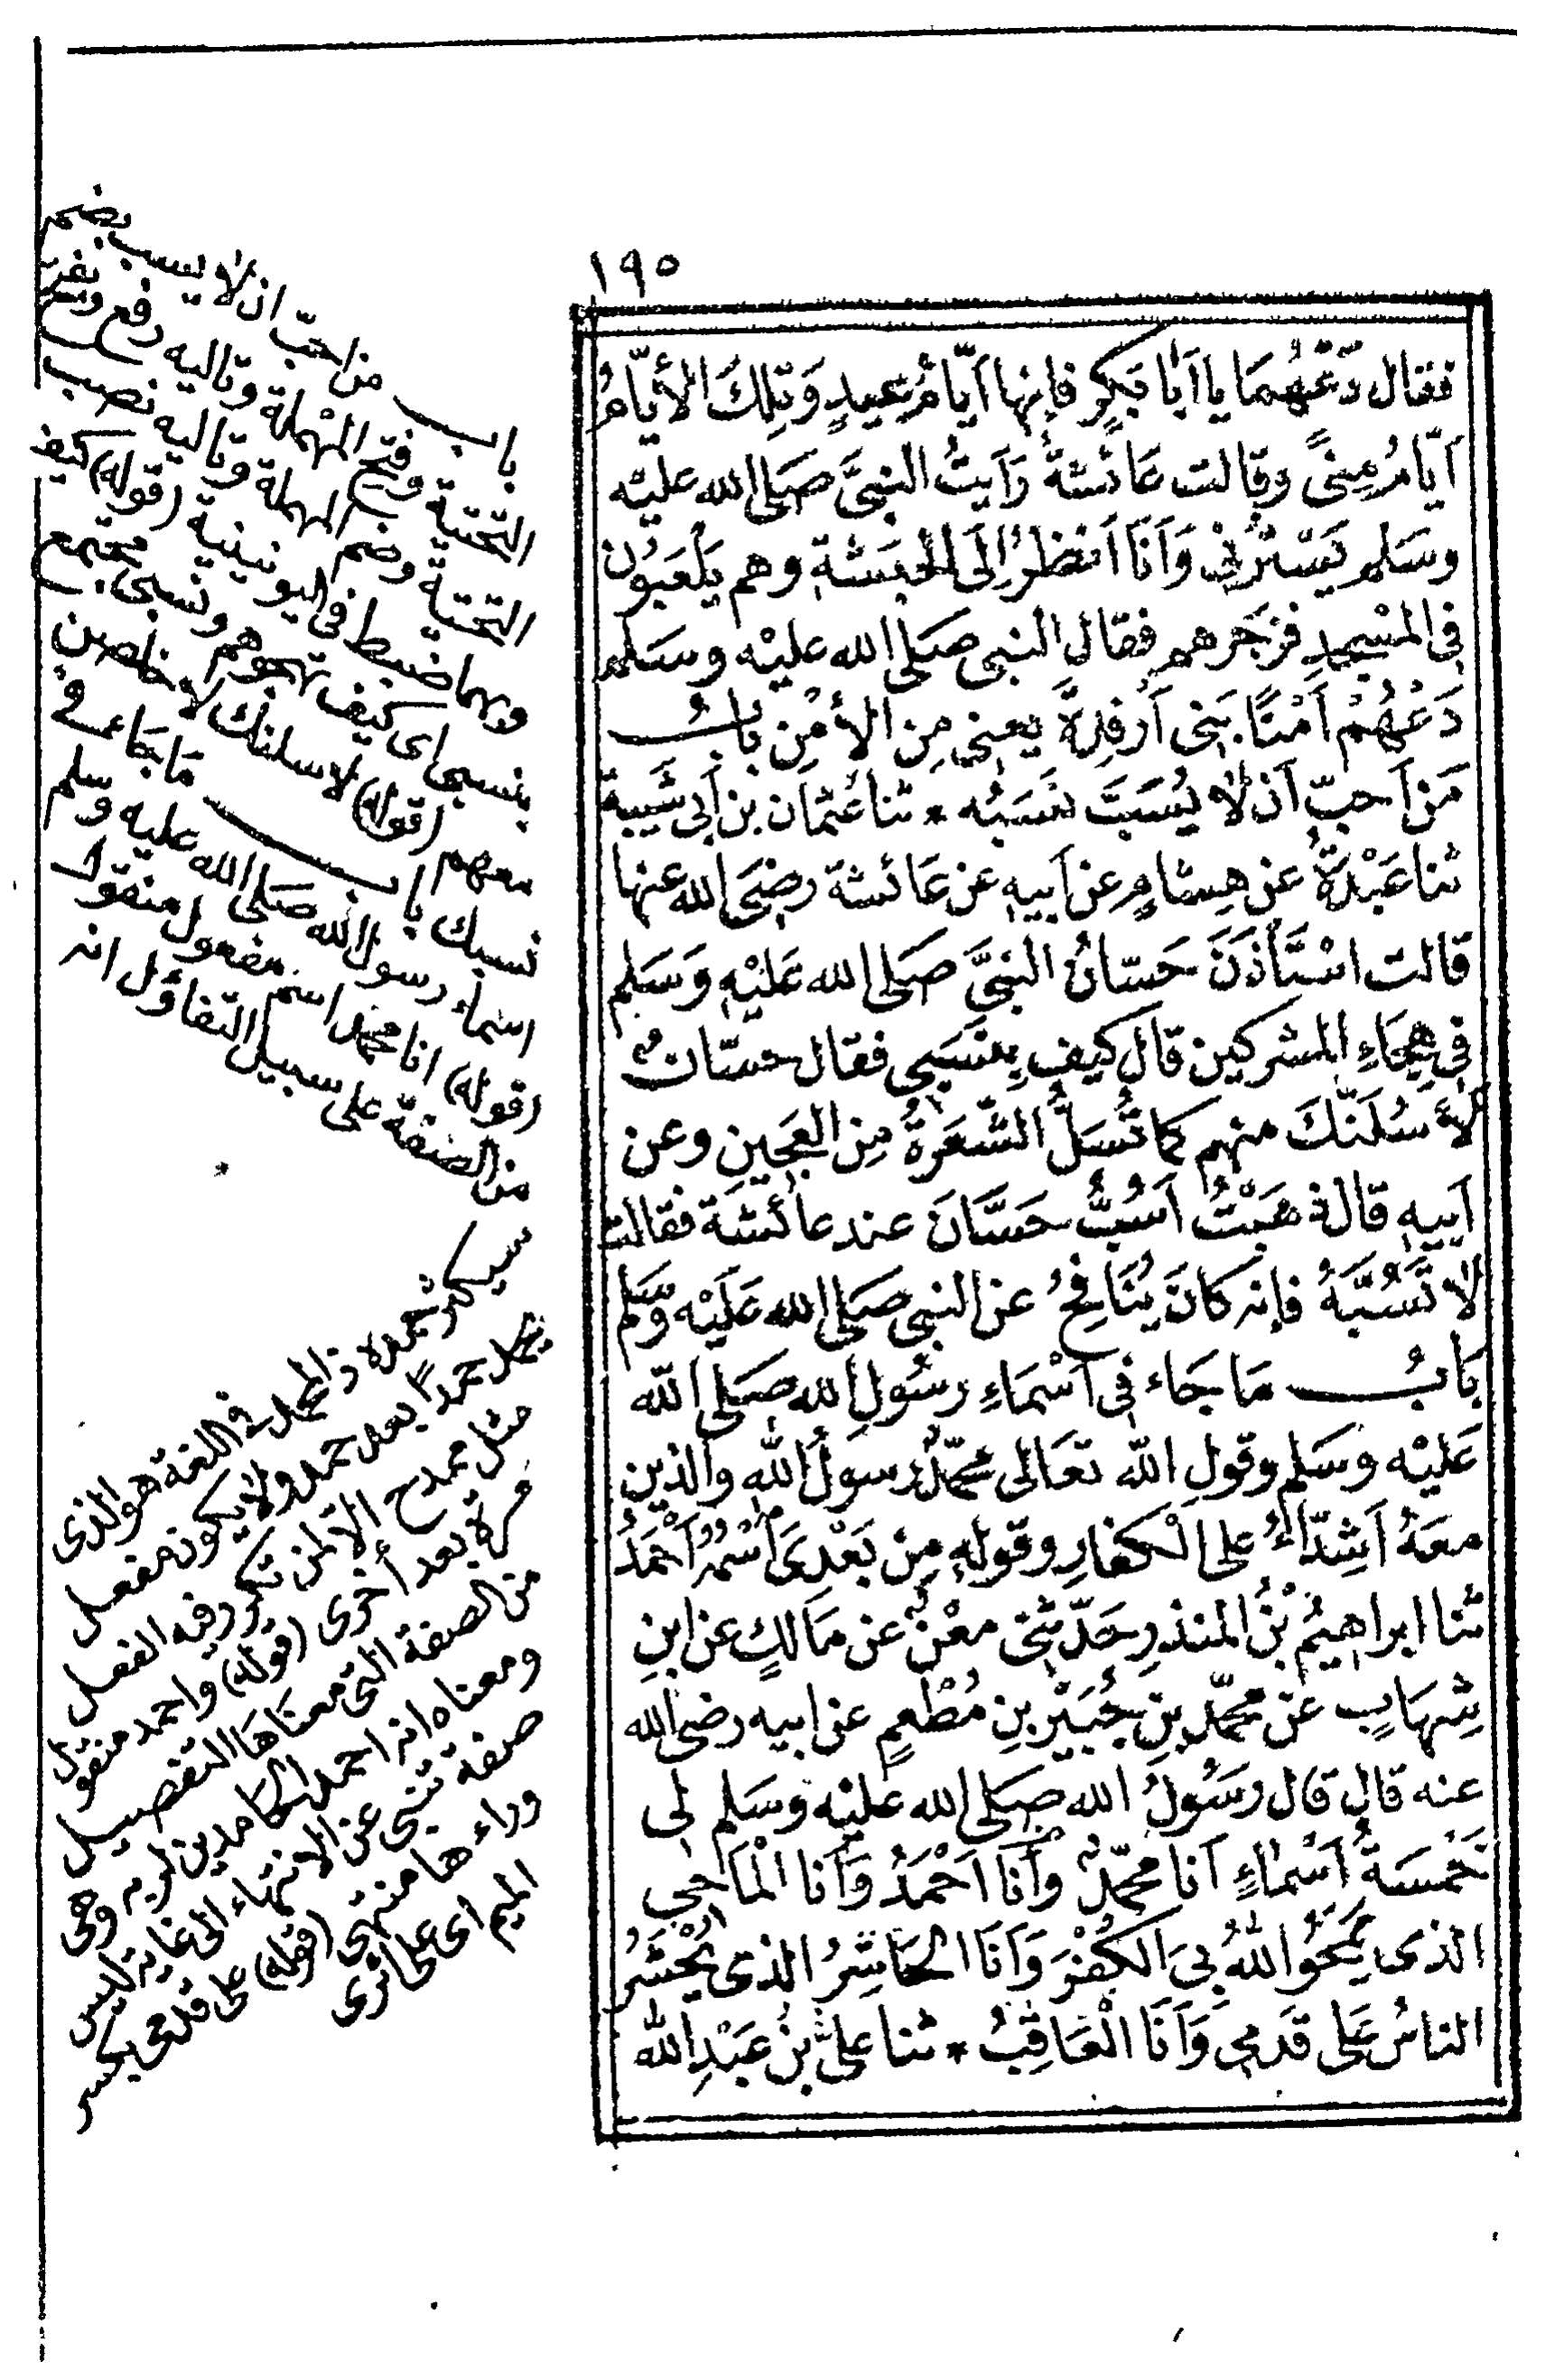 ١٩٥
فقال دَعْهُما يا اَبا بَكرٍ فإنها اَيّامُ عيدٍ وَتِلكَ الأيّامُ
اَيّامُ مِنًى وقالت عَائشةُ رَاَيتُ النبىَّ صَلى الله عليْه
وسَلم يَسْتُرُنِى وَاَنَا اَنظرُ اِلَى الحبَشَةِ وهم يَلْعَبُون
فى المسْجدِ فزجَرهم فقال النبى صَلى الله عليْه وسَلم
دَعْهُمْ اَمْنًا بَنِى اَرْفِدَةَ يعنِى مِن الأمْنِ بابُ
مَن اَحبّ اَن لا يُسَبَّ نَسَبُه * ثنا عُثمان بن اَبى شَيبةَ
ثنا عَبْدَةُ عن هِشامٍ عن اَبيهِ عن عَائشة رضىَ الله عنها
قالت اسْتَأذَنَ حَسّانُ النبىَّ صَلى الله عَليْهِ وَسَلم
فى هِجَاءِ المشركين قال كيف بِنَسَبى فقال حسّانُ
لأَسُلَنّكَ منهم كما تُسَلُّ الشّعَرَةُ مِن العَجِين وعن
اَبيهِ قال ذهَبْتُ اَسُبُّ حَسَّانَ عند عائشَة فقالت
لا تَسُبَّهُ فإنه كانَ يُنَافِحُ عن النبى صَلى الله عَلَيْه وَسَلم
بَابُ مَا جَاء فى اَسْمَاءِ رسُولِ الله صَلى الله
عَليْه وسَلم وقولِ الله تعَالى محمّدٌ رسولُ الله والذين
معَهُ اَشِدّاءُ على الْكفارِ وقولِهِ مِنْ بَعْدِى اسْمُهُ اَحْمَدُ
ثنا ابراهيمُ بْنُ المنذرِ حَدّثنى معْنٌ عن مَالكٍ عن ابنِ
شِهَابٍ عن محمّد بنِ جُبَيْر بنِ مُطْعِمٍ عن ابيه رضى الله
عنه قال قال رسُولُ الله صَلى الله عليْه وسَلم لى
خَمْسَةُ اَسْماءٍ اَنا محمّدٌ وَاَنا اَحْمَدُ وَاَنا الْمَاحِى
الذى يَمْحُو اللهُ بىَ الكُفْرَ وَاَنَا الحَاشِرُ الذى يُحْشَرُ
الناسُ عَلى قدَمِى وَاَنَا الْعَاقِبُ * ثنا علىُّ بنُ عَبْدِ الله
باب من احبّ ان لا يسب بضم
التحتية وفتح المهملة وتاليه رفع وبفتح
التحتية وضم المهملة وتاليه نصب
وبهما ضبط فى اليونينية (قوله) كيف
بنسبى اى كيف تهجوهم ونسبى مجتمع
معهم (قوله) لاسلنك لاخلصن
نسبك باب ما جاء فى
اسماء رسول الله صلى الله عليه وسلم
(قوله) انا محمد اسم مفعول منقول
من الصفة على سبيل التفاؤل انه
سيكثر حمده ذ المحمد فى اللغة هو الذى
يحمل حمدًا بعد حمد ولا يكون مفعل
مثل ممدح الا لمن تكرر فيه الفعل
مرة بعد أخرى (قوله) واحمد منقول
من الصفة التى معناها التفضيل
ومعناه انه احمد الحامدين لربه وهى
صفة تنبى عن الانتهاء الى غاية ليس
وراءها منتهى (قوله) على قدمى بكسر
الميم اى على اثرى